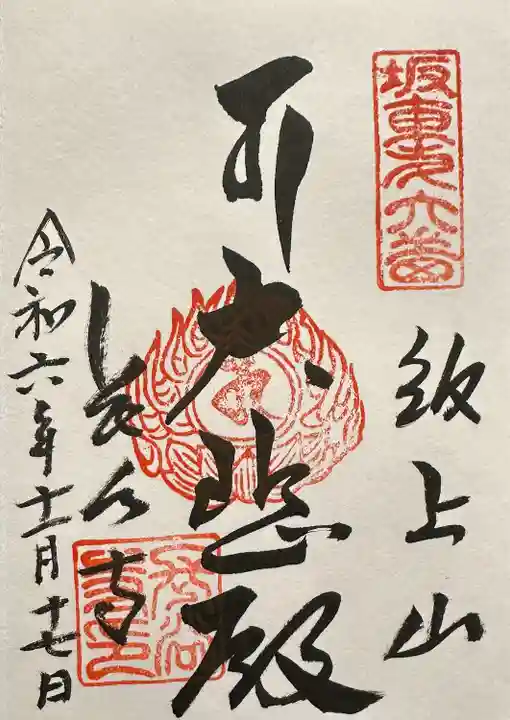 坂東第六番
飯上山
大悲殿
長谷寺
令和六年十一月十七日